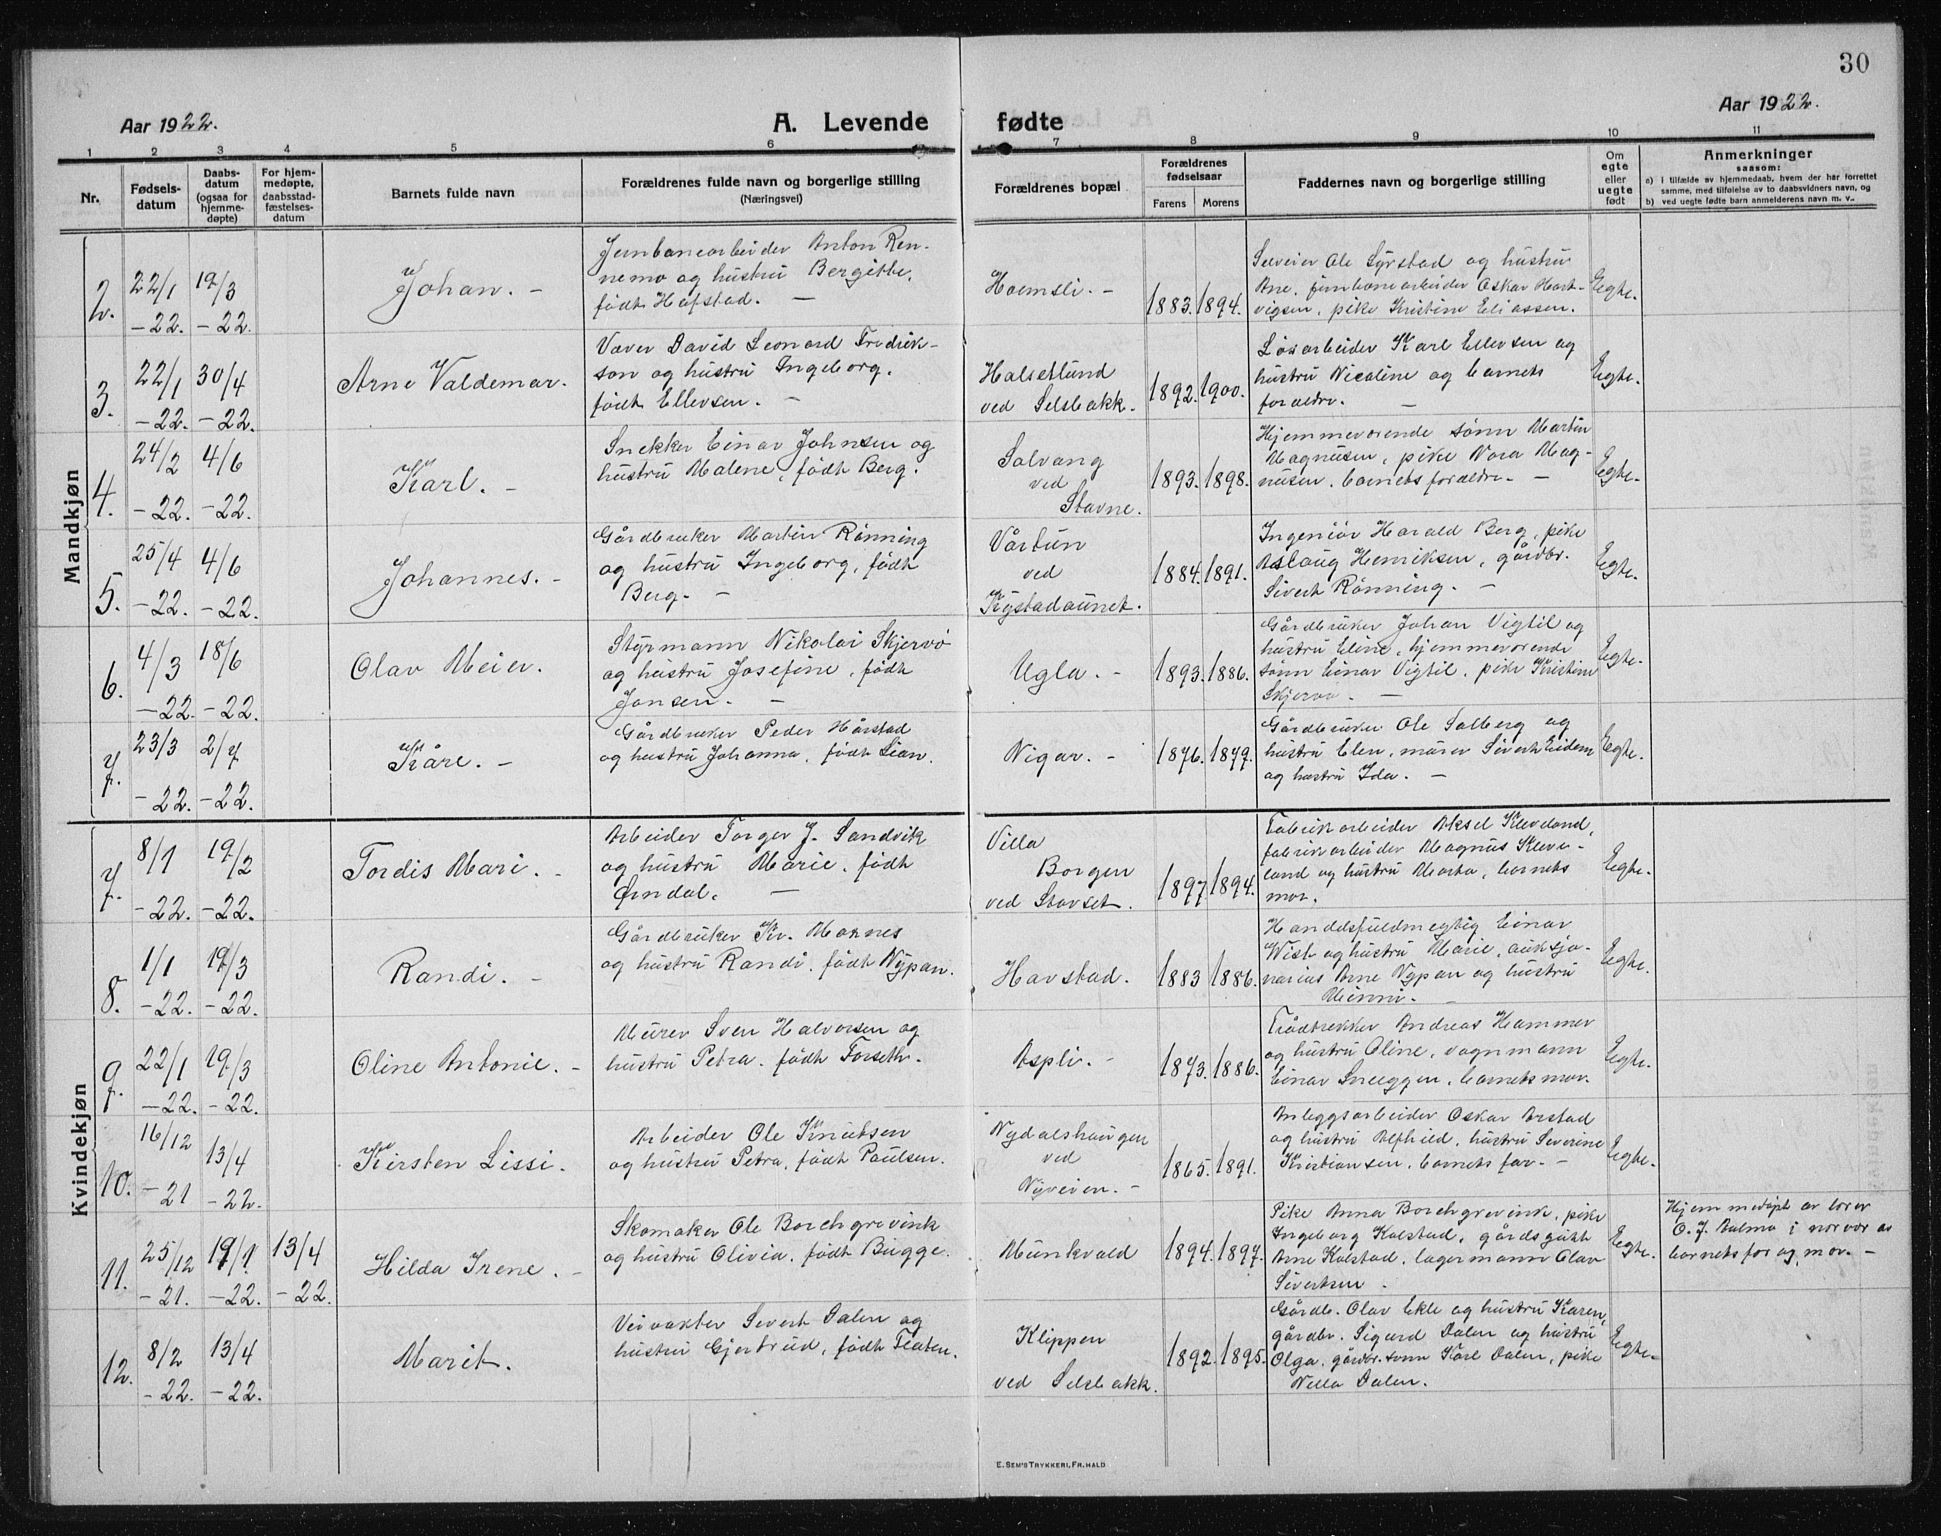 30
Aar 1922.
A. Levende fødte
Aar 1922.
1 2 3 4 5 6 7 8 9 10 11
Nr.
Fødsels-
datum
Daabs-
datum
(ogsaa for
hjemme-
døpte)
For hjem-
medøpte,
daabsstad-
fæstelses-
datum
Barnets fulde navn
Forældrenes fulde navn og borgerlige stilling
(Næringsvei)
Forældrenes bopæl
Forældrenes
fødselsaar
Farens Morens
Faddernes navn og borgerlige stilling
Om
egte
eller
uegte
født
Anmerkninger
saasom:
a) i tilfælde av hjemmedaab, hvem der har forrettet
samme, med tilføielse av to daabsvidners navn, og
b) ved uegte fødte barn anmelderens navn m. v.
Mandkjøn
2. 22/1 -22. 19/3 -22.
Johan. -
Jernbanearbeider Anton Ren-
nemo og hustru Bergitte,
født Hofstad. -
Hoemsli. -
1883. 1894.
Selveier Ole Syrstad og hustru
Ane, jernbanearbeider Oskar Hart-
vigsen, pike Kristine Eliassen.
Egte.
3. 22/1 -22. 30/4 -22.
Arne Valdemar.
Væver David Leonard Fredrik-
son og hustru Ingeborg,
født Ellevsen. -
Halsetlund
ved Selsbakk.
1892. 1900.
Løsarbeider Karl Ellevsen og
hustru Nicoline og barnets
forældre. -
Egte.
4. 24/2 -22. 4/6 -22.
Karl. -
Snekker Einar Johnsen og
hustru Malene, født Berg.
Solvang
ved
Stavne.
1893. 1898.
Hjemmeværende sønn Martin
Magnusen, pike Nora Mag-
nusen, barnets forældre. -
Egte.
5. 25/4 -22. 4/6 -22.
Johannes. -
Gårdbruker Martin Rønning
og hustru Ingeborg, født
Berg. -
Vårtun
ved
Kystadaunet.
1884. 1891.
Ingeniør Harald Berg, pike
Aslaug Henriksen, gårdbr.
Sivert Rønning. -
Egte.
6. 4/3 -22. 18/6 -22.
Olav Meier.
Styrmann Nikolai Skjervø
og hustru Josefine, født
Jonsen. -
Ugla. -
1893. 1886.
Gårdbruker Johan Vigtil og
hustru Eline, hjemmeværende
sønn Einar Vigtil, pike Kristine
Skjervø. -
Egte.
7. 23/3 -22. 2/7 -22.
Kåre. -
Gårdbruker Peder Hårstad
og hustru Johanna, født Lian.
Nigar. -
1876. 1879.
Gårdbruker Ole Solberg og
hustru Elen, murer Sivert Eidem
og hustru Ida. -
Egte.
Kvindekjøn
7. 8/1 -22. 19/2 -22.
Tordis Mari. -
Arbeider Torger J. Sandvik
og hustru Marie, født
Ørndal. -
Villa
Borgen
ved Stavset.
1897 1894.
Fabrikarbeider Aksel Kleveland,
fabrikarbeider Magnus Kleve-
land og hustru Marta, barnets
mor.
Egte.
8. 1/1 -22. 19/3 -22.
Randi. -
Gårdbruker Kr. Moxnes
og hustru Randi, født Nypan.
Havstad.
1883 1886.
Handelsfuldmegtig Einar
Wist og hustru Marie, auksjo-
narius Arne Nypan og hustru
Minni. -
Egte.
9. 22/1 -22. 19/3 -22.
Oline Antonie. -
Murer Sven Halvorsen og
hustru Petra, født Forseth.
Aspli. -
1873. 1886.
Trådtrekker Andreas Hammer
og hustru Oline, vognmann
Einar Sneeggen, barnets mor.
Egte.
10. 16/12 -21 13/4 -22.
Kirsten Lissi.
Arbeider Ole Knutsen
og hustru Petra, født Paulsen.
Nydalshaugen
ved
Nyveien. -
1865. 1891.
Anleggsarbeider Oskar Arstad
og hustru Alfhild, hustru Severine
Kristiansen, barnets far. -
Egte.
11. 25/12 -21. 19/1 -22. 13/4 -22.
Hilda Irene. -
Skomaker Ole Borchgrevink
og hustru Olivia, født Bugge.
Munkvold
1894. 1897.
Pike Anna Borchgrevink, pike
Ingeborg Kolstad, gårdsgutt
Arne Kolstad, lagermann Olav
Sivertsen.
Egte.
Hjemmedøpt av lærer
O. J. Aalmo i nærvær av
barnets far og mor. -
12. 8/2 -22. 13/4 -22.
Marit.
Veivokter Sivert Dalen og
hustru Gjertrud, født Flaten.
Klippen
ved Selsbakk.
1892. 1895.
Gårdb. Olav Ekle og hustru Karen,
gårdbr. Sigurd Dalen og hustru
Olga, gårdbr. sønn Karl Dalen, pike
Nella Dalen.
Egte.
E. SEM'S TRYKKERI, FR. HALD